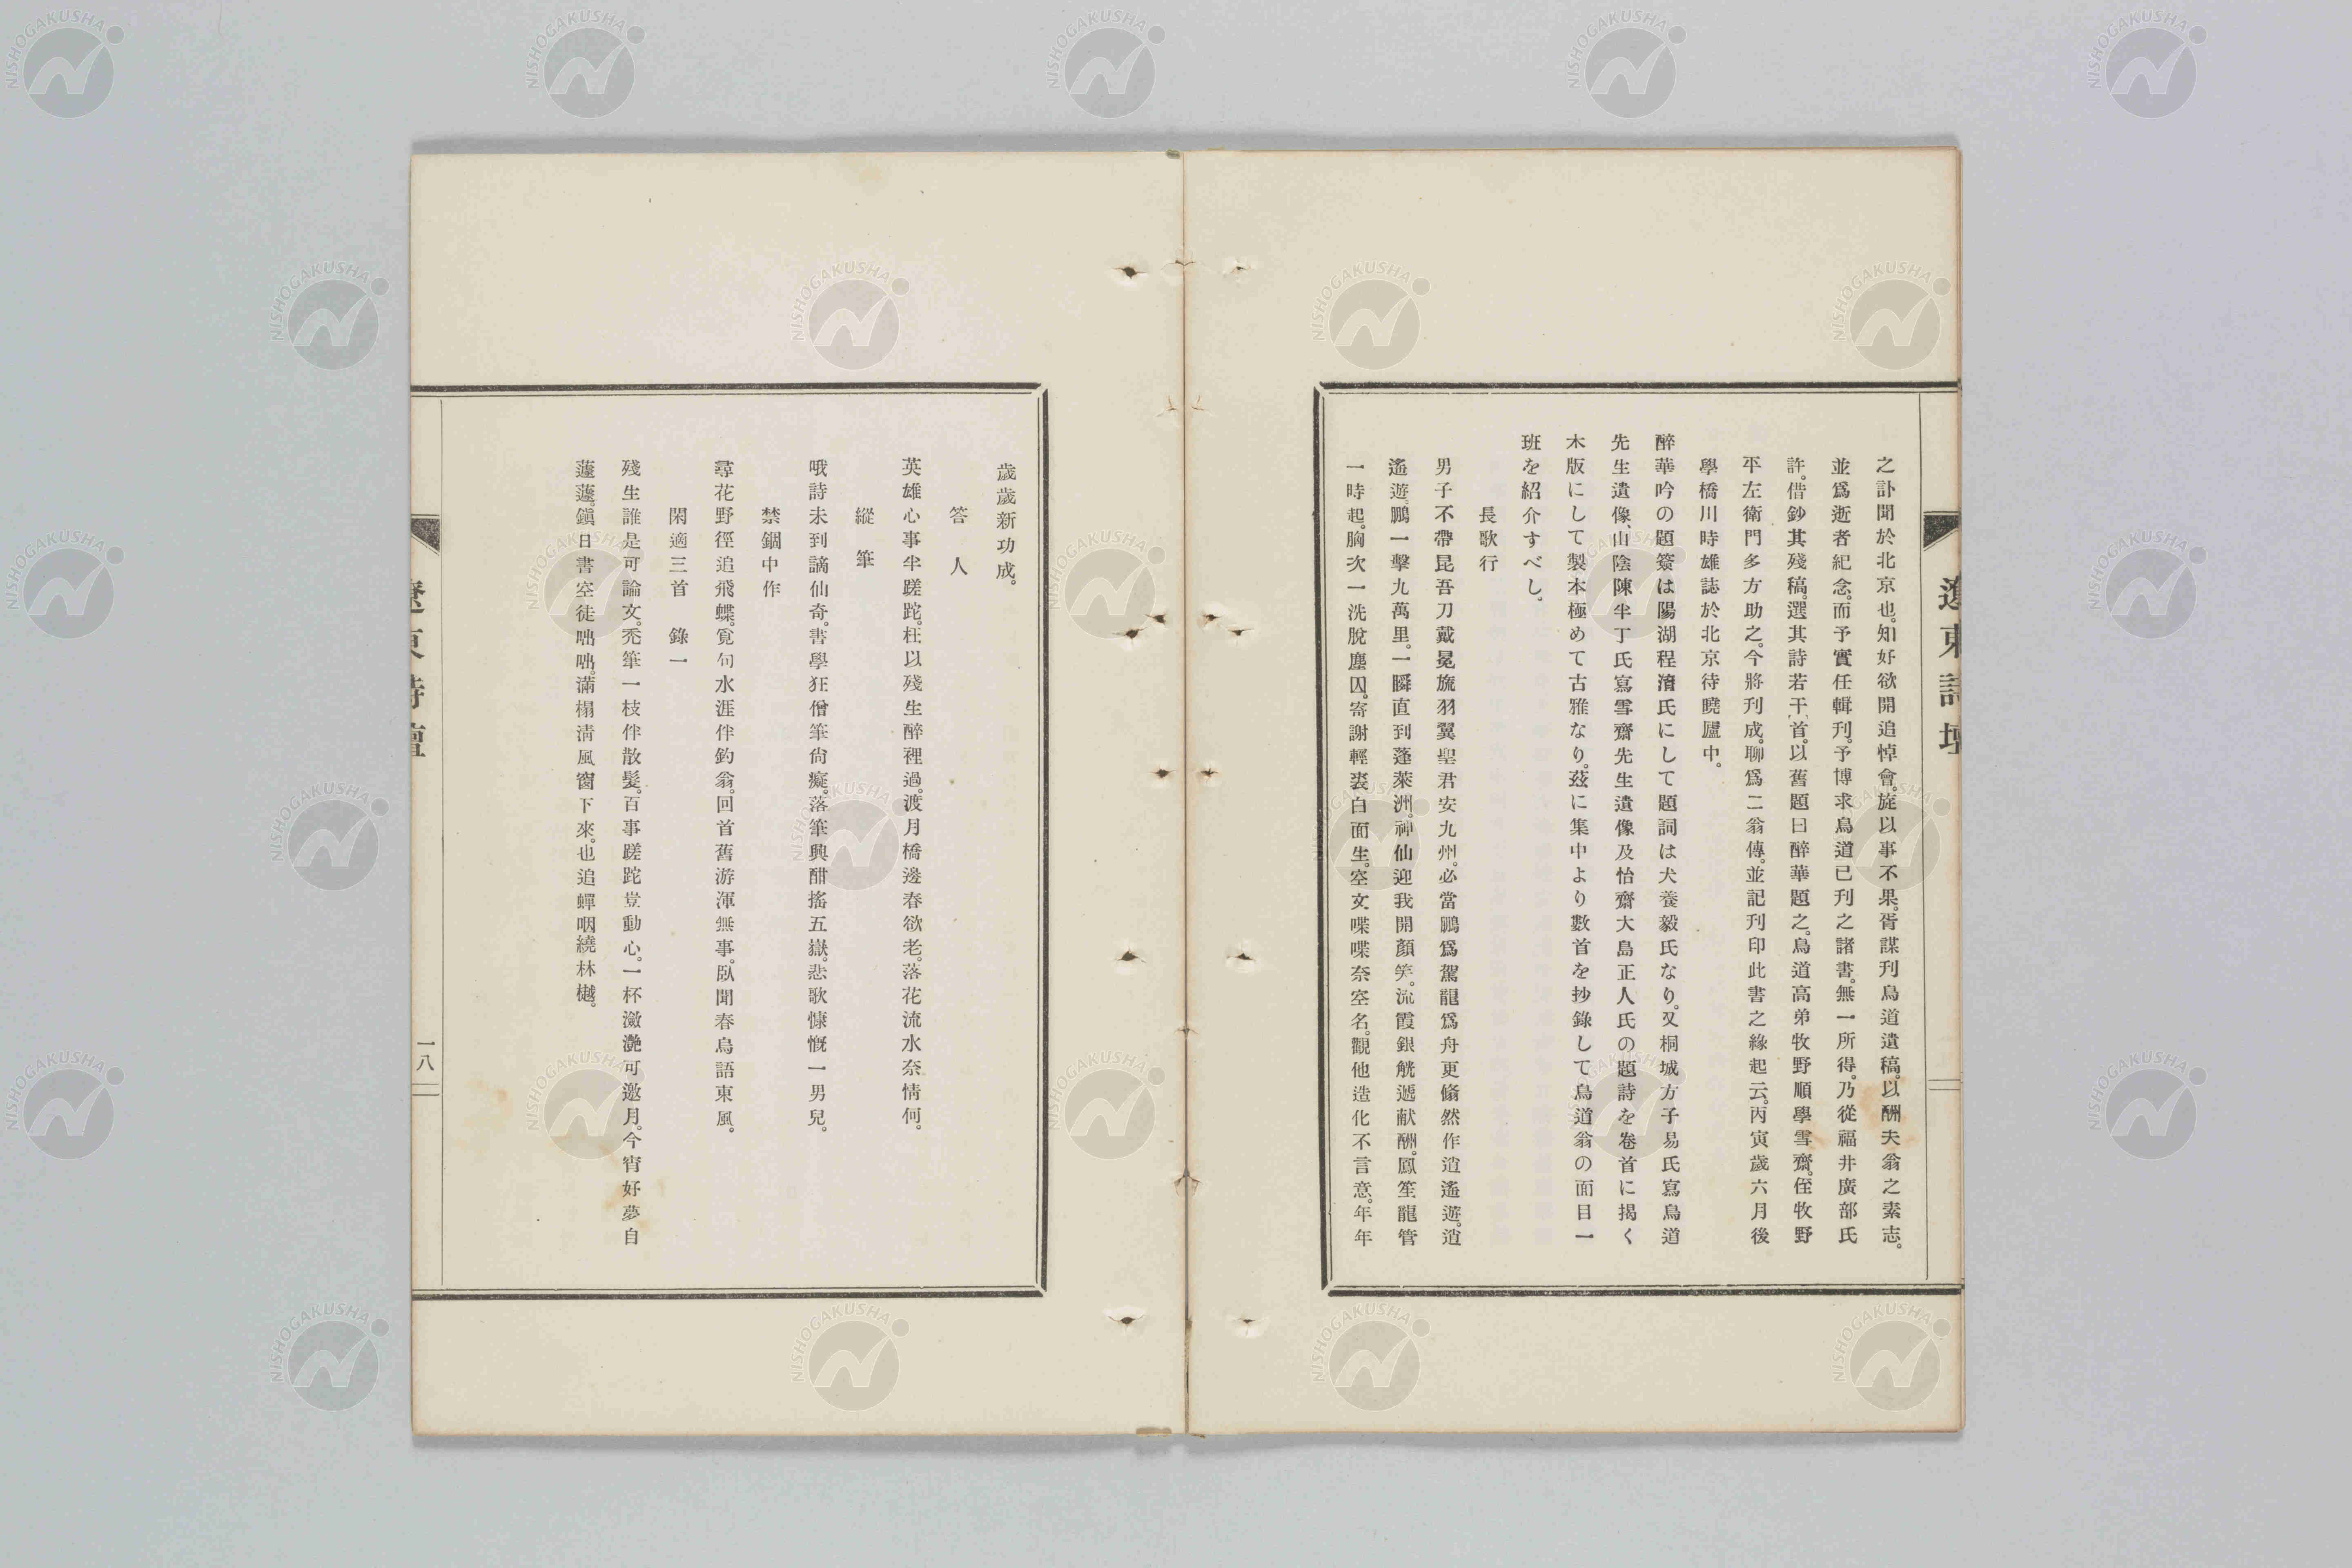 之訃聞於北京也。知好欲開追悼會。旋以事不果。胥謀刊鳥道遺稿。以酬夫翁之素志。
並爲逝者紀念。而予實任輯刊。予博求鳥道已刊之諸書。無一所得。乃從福井廣部氏
許。借鈔其殘稿。選其詩若干首。以舊題曰醉華題之。鳥道高弟牧野順學雪齋。侄牧野
平左衛門多方助之。今將刊成。聊爲二翁傳。並記刊印此書之緣起云。丙寅歲六月後
學橋川時雄誌於北京待曉廬中。
醉華吟の題簽は陽湖程淯氏にして題詞は犬養毅氏なり。又桐城方子易氏寫鳥道
先生遺像、山陰陳半丁氏寫雪齋先生遺像及怡齋大島正人氏の題詩を卷首に揭く
木版にして製本極めて古雅なり。茲に集中より數首を抄錄して鳥道翁の面目一
班を紹介すべし。
長歌行
男子不帶昆吾刀戴冕旒羽翼聖君安九州。必當鵬爲駕龍爲舟更翛然作逍遙遊。逍
遙遊。鵬一擊九萬里。一瞬直到蓬萊洲。神仙迎我開顏笑。流霞銀觥遞献酬。鳳笙龍管
一時起。胸次一洗脫塵囚。寄謝輕裘白面生。空文喋喋奈空名。觀他造化不言意。年年
遼東詩壇
歲歲新功成。
答人
英雄心事半蹉跎。枉以殘生醉裡過。渡月橋邊春欲老。落花流水奈情何。
縱筆
哦詩未到謫仙奇。書學狂僧筆尙癡。落筆興酣搖五嶽。悲歌慷慨一男兒。
禁錮中作
尋花野徑追飛蝶。覓句水涯伴釣翁。回首舊游渾無事。臥聞春鳥語東風。
閑適三首 錄一
殘生誰是可論文。禿筆一枝伴散髮。百事蹉跎豈動心。一杯瀲灔可邀月。今宵好夢自
蘧蘧。鎭日書空徒咄咄。滿榻淸風窗下來。也追蟬咽繞林樾。
遼東詩壇
一八
NISHOGAKUSHA